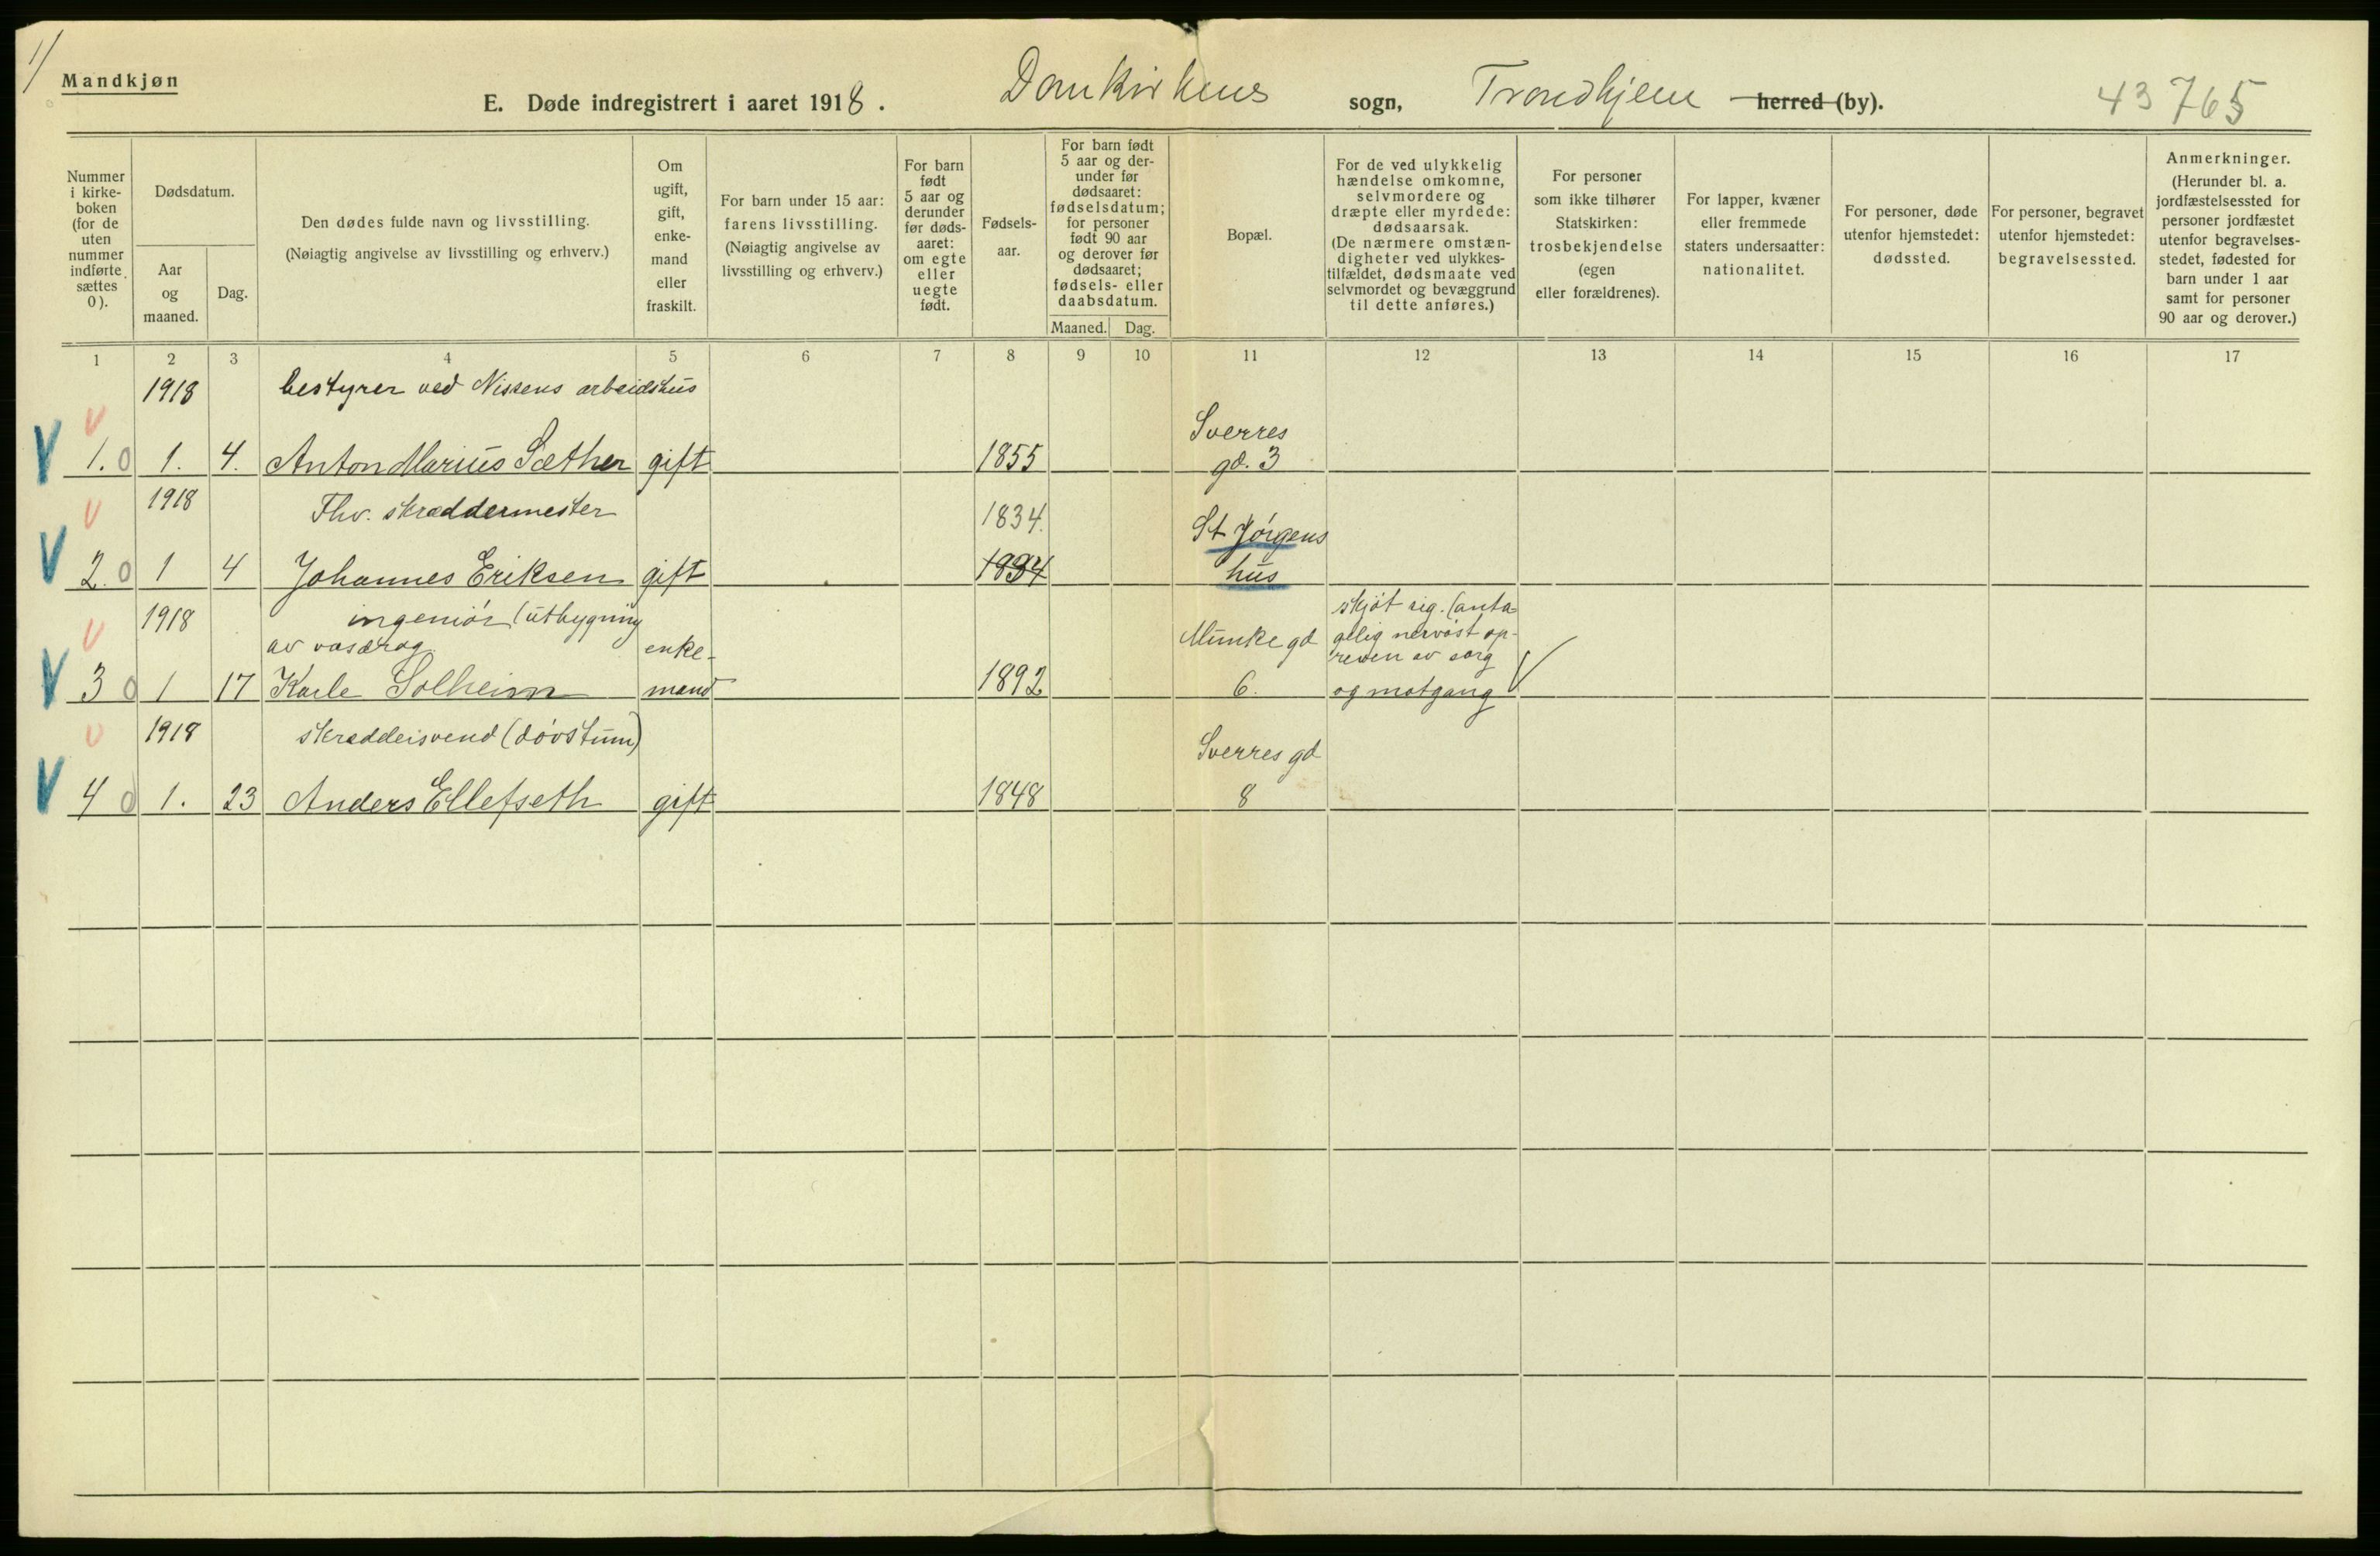 1/
Mandkjøn
E. Døde indregistrert i aaret 1918. Domkirkens sogn, Trondhjem herred (by). 43 765
Nummer
i kirke-
boken
(for de
uten
nummer
indførte
sættes
0).
Dødsdatum.
Aar
og
maaned.
Dag.
Den dødes fulde navn og livsstilling.
(Nøiagtig angivelse av livsstilling og erhverv.)
Om
ugift,
gift,
enke-
mand
eller
fraskilt.
For barn under 15 aar:
farens livsstilling.
(Nøiagtig angivelse av
livsstilling og erhverv.)
For barn
født
5 aar og
derunder
før døds-
aaret:
om egte
eller
uegte
født.
Fødsels-
aar.
For barn født
5 aar og der-
under før
dødsaaret:
fødselsdatum;
for personer
født 90 aar
og derover før
dødsaaret;
fødsels- eller
daabsdatum.
Maaned. Dag.
Bopæl.
For de ved ulykkelig
hændelse omkomne,
selvmordere og
dræpte eller myrdede:
dødsaarsak.
(De nærmere omstæn-
digheter ved ulykkes-
tilfældet, dødsmaate ved
selvmordet og bevæggrund
til dette anføres.)
For personer
som ikke tilhører
Statskirken:
trosbekjendelse
(egen
eller forældrenes).
For lapper, kvæner
eller fremmede
staters undersaatter:
nationalitet.
For personer, døde
utenfor hjemstedet:
dødssted.
For personer, begravet
utenfor hjemstedet:
begravelsessted.
Anmerkninger.
(Herunder bl. a.
jordfæstelsessted for
personer jordfæstet
utenfor begravelses-
stedet, fødested for
barn under 1 aar
samt for personer
90 aar og derover.)
1 2 3 4 5 6 7 8 9 10 11 12 13 14 15 16 17
1918 bestyrer ved Nissens arbeidshus
V Sverres
V 1. 0 1. 4. Anton Marius Sæther gift 1855 gd. 3
V 1918 Fhv. skræddermester 1834. St Jørgens
V 2. 0 1 4 Johannes Eriksen gift 1834 hus
V 1918 ingeniør (utbygning skjøt sig. (anta
av vasdrag enke- Munke gd gelig nervøst op-
reven av sorg
V 3 0 1 17 Karle Solheim mand 1892 6. og motgang
V 1918 skræddersvend (døvstum) Sverres gd
V 4 0 1. 23 Anders Ellefseth gift 1848 8